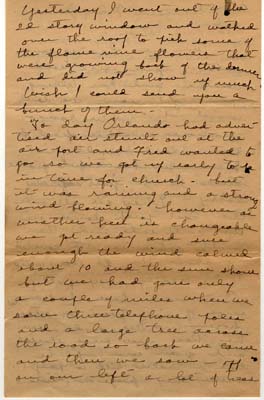 Yesterday I went out of the
2d story window and walked
over the roof to pick some of
the flame vine flowers that
were growing back of the dormer
and did not show very much
Wish I could send you a
bunch of them.
To day Orlando had adver-
tised air stunts out at the
air port and Fred wanted to
go so we got up early to be
in time for church - but
it was raining and a strong
wind blowing. however as
weather here is changeable
we got ready and sure
enough the wind calmed
about 10 and the sun shone
but we had gone only
a couple of miles when we
saw three telephone poles
and a large tree across
the road so back we came
and then we saw off
on our left a lot of trees